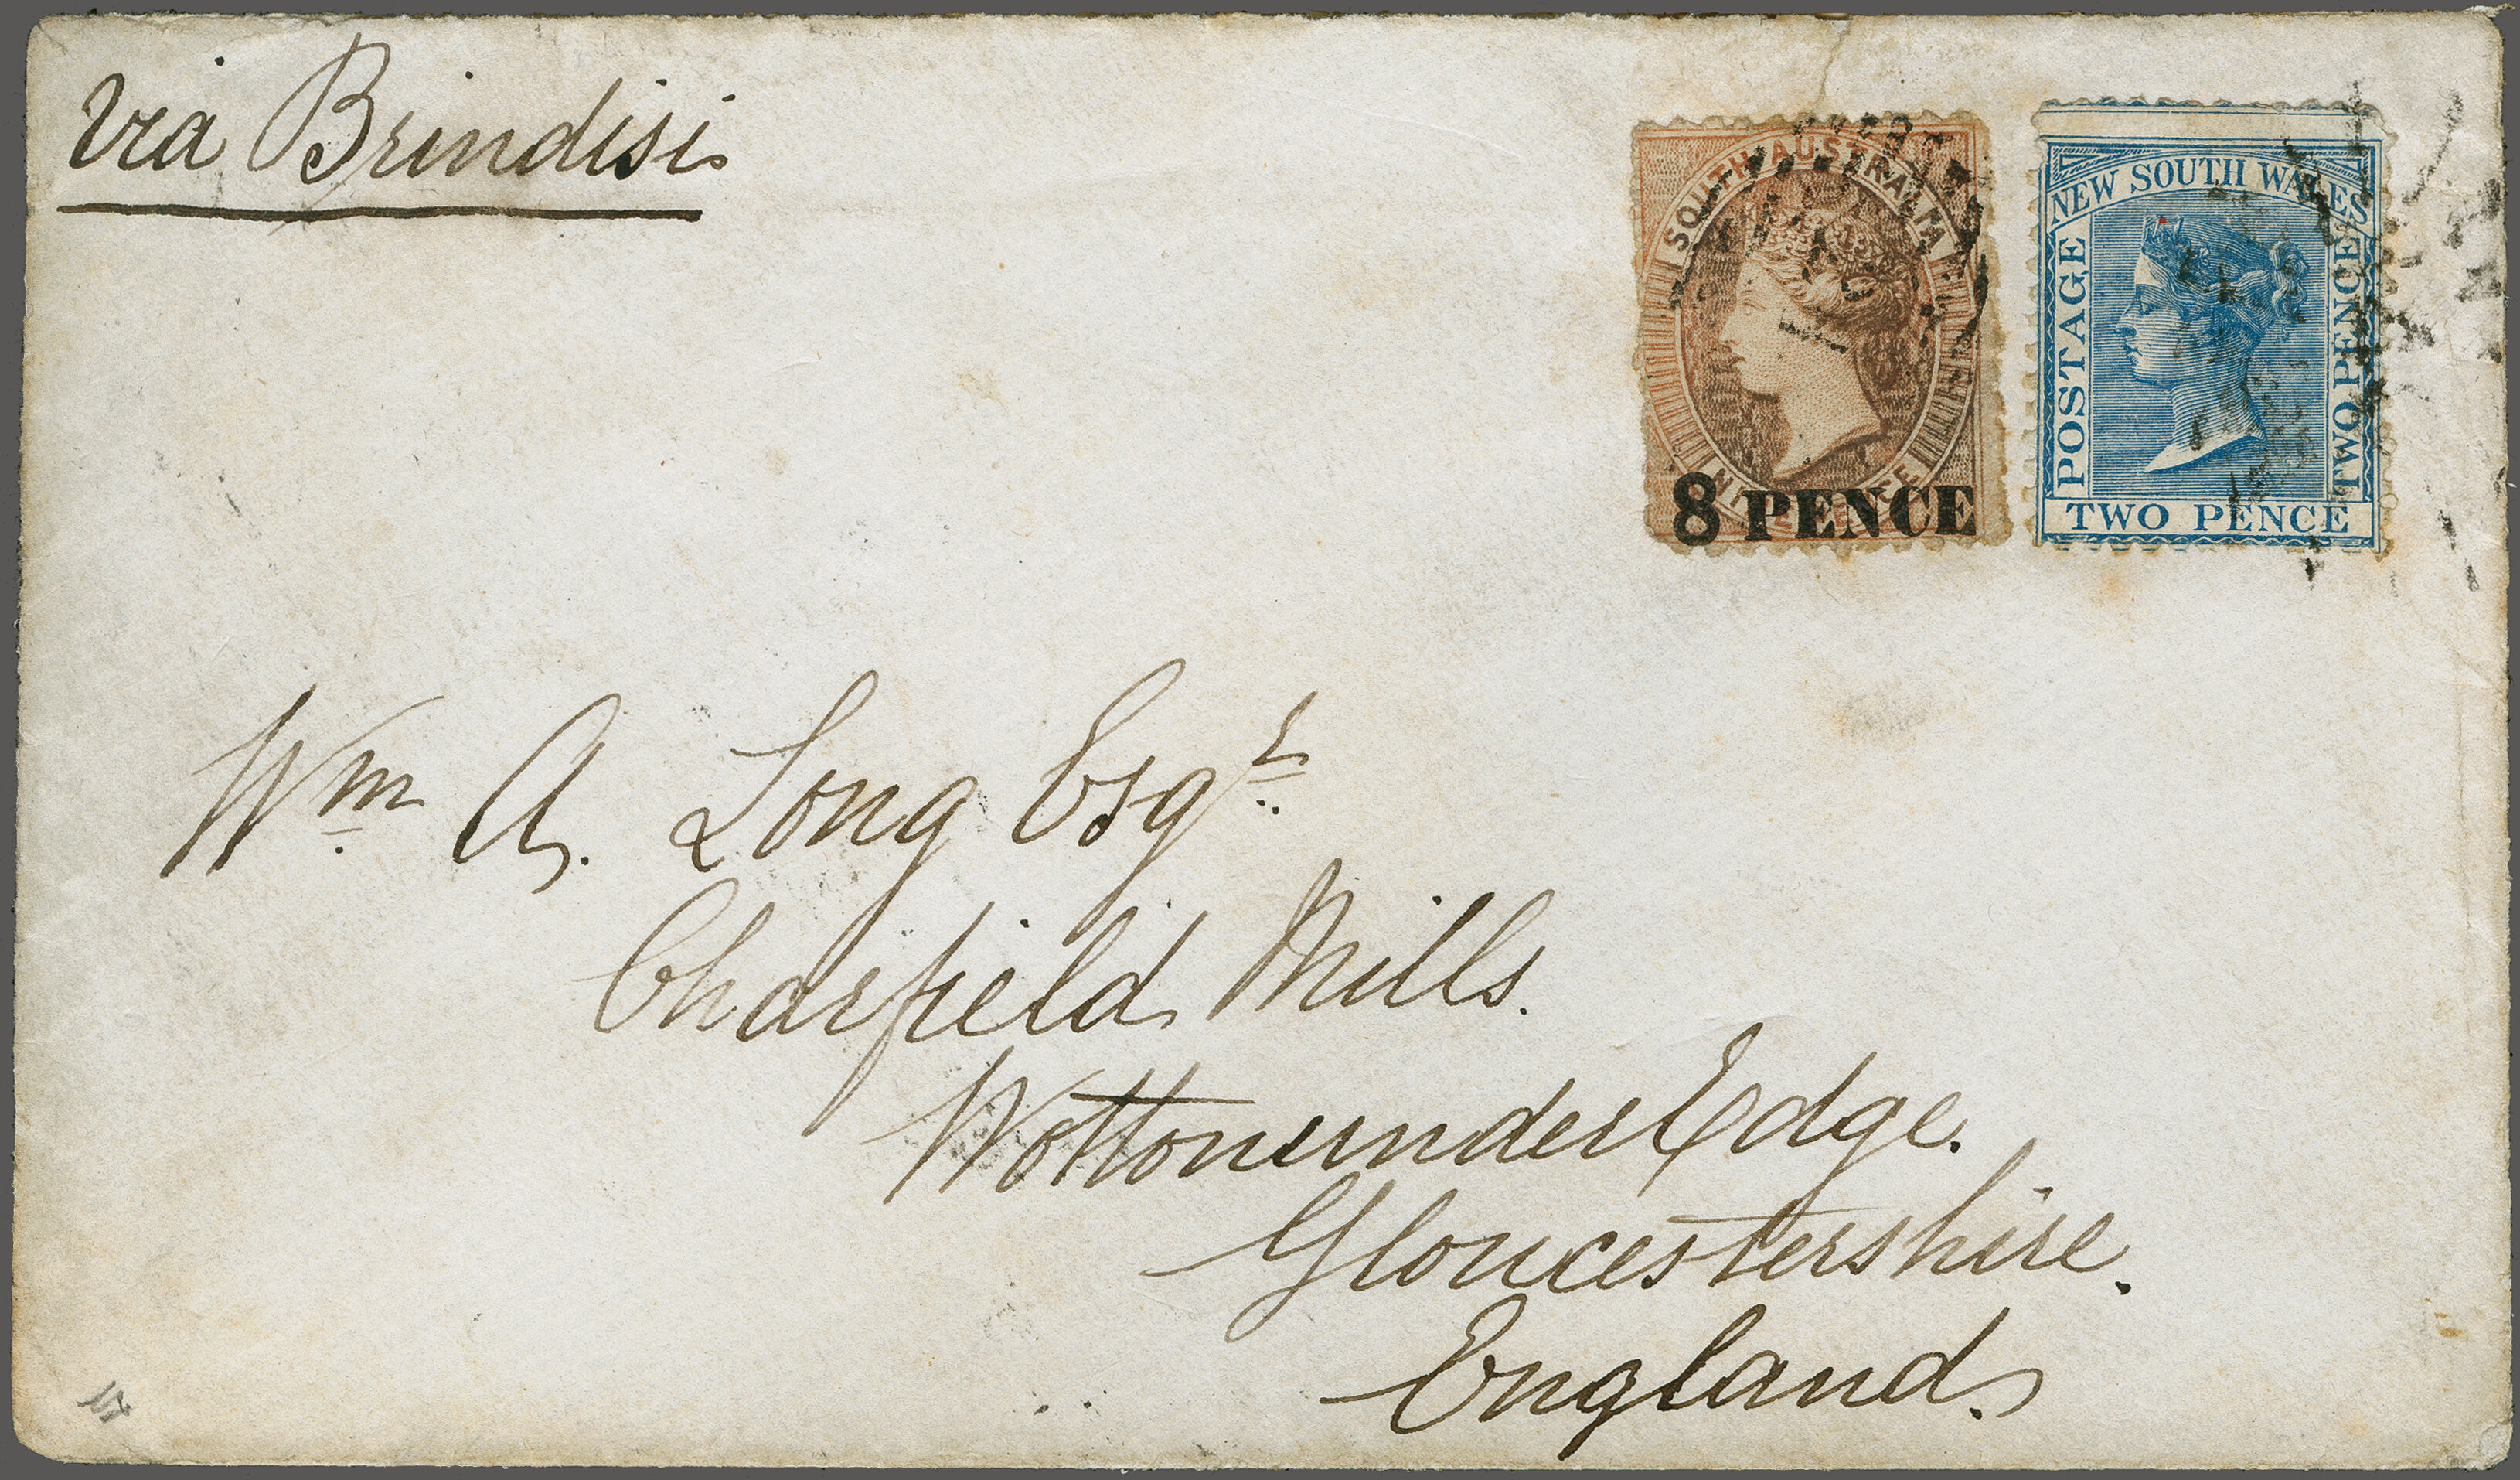 via Brindisi
SOUTH AUSTRALIA
8 PENCE
NEW SOUTH WALES
POSTAGE
TWO PENCE
TWO PENCE
Wm A. Long Esqr
Charfield Mills.
WottonunderEdge.
Gloucestershire.
England.